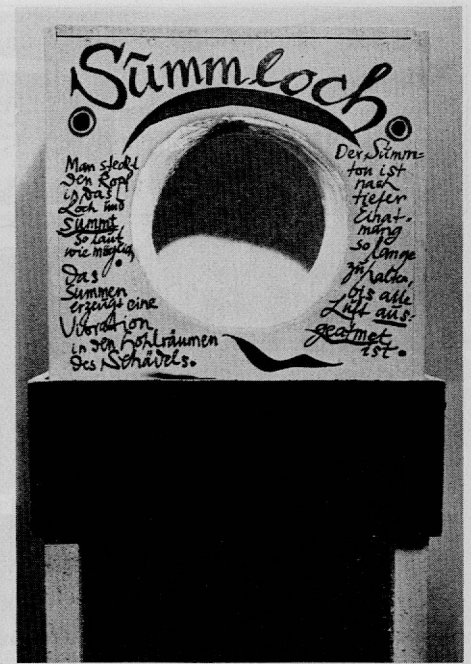 Summloch
Man steckt
den Kopf
in das
Loch und
summt
so laut
wie möglich.
Das
Summen
erzeugt eine
Vibration
in den Hohlräumen
des Schädels.
Der Summ=
ton ist
nach
tiefer
Einat-
mung
so lange
zu halten,
bis alle
Luft aus-
geatmet
ist.